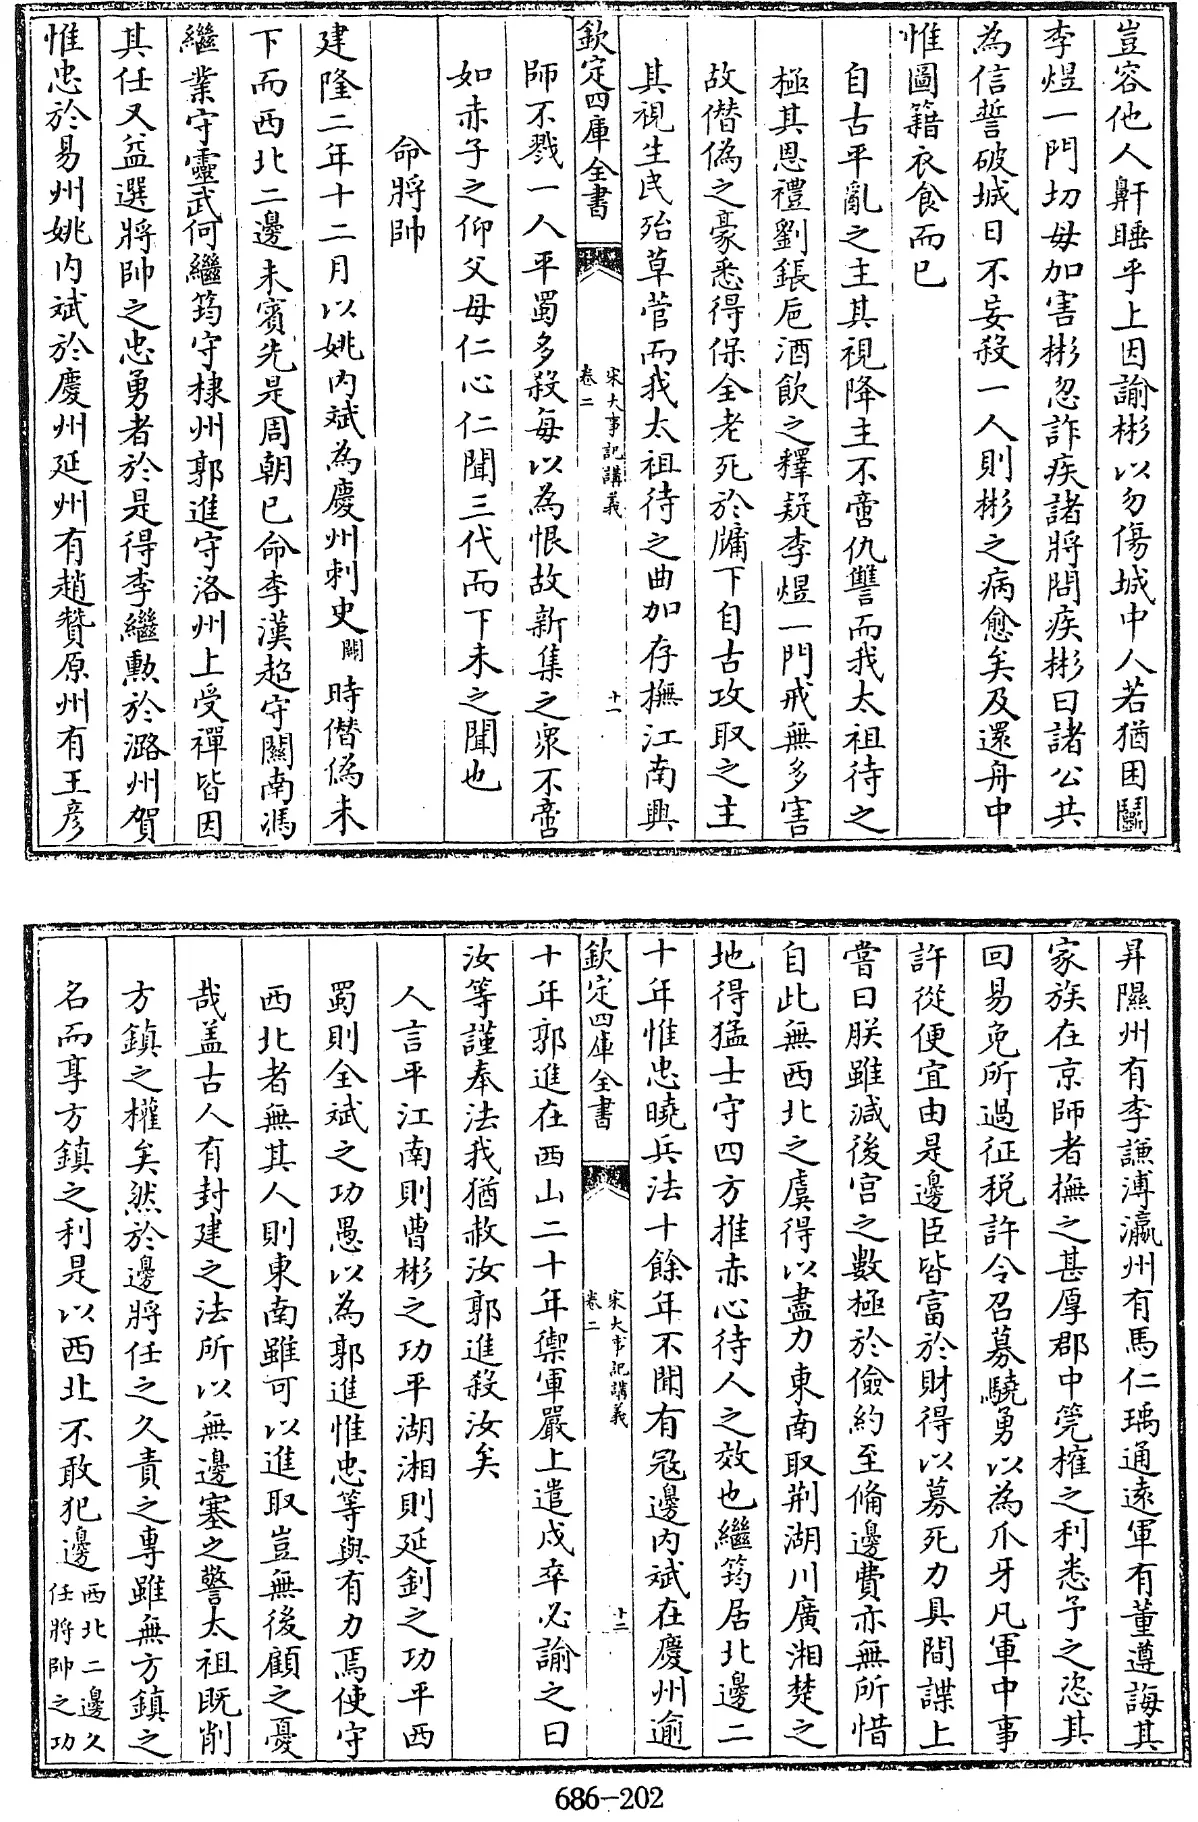 豈容他人鼾睡乎上因諭彬以勿傷城中人若猶困鬭
李煜一門切毋加害彬忽詐疾諸將問疾彬曰諸公共
為信誓破城日不妄殺一人則彬之病愈矣及還舟中
惟圖籍衣食而已
自古平亂之主其視降主不啻仇讐而我太祖待之
極其恩禮劉鋹巵酒飲之釋疑李煜一門戒無多害
故僭偽之豪悉得保全老死於牖下自古攻取之主
其視生民殆草菅而我太祖待之曲加存撫江南興
欽定四庫全書
宋大事記講義
卷二
十一
師不戮一人平蜀多殺每以為恨故新集之衆不啻
如赤子之仰父母仁心仁聞三代而下未之聞也
命將帥
建隆二年十二月以姚内斌為慶州刺史闕時僭偽未
下而西北二邊未賓先是周朝已命李漢超守關南馮
繼業守靈武何繼筠守棣州郭進守洛州上受禪皆因
其任又益選將帥之忠勇者於是得李繼勲於潞州賀
惟忠於易州姚内斌於慶州延州有趙贊原州有王彥
昇隰州有李謙溥瀛州有馬仁瑀通遠軍有董遵誨其
家族在京師者撫之甚厚郡中筦榷之利悉予之恣其
回易免所過征税許令召募驍勇以為爪牙凡軍中事
許從便宜由是邊臣皆富於財得以募死力具間諜上
嘗曰朕雖減後宮之數極於儉約至脩邊費亦無所惜
自此無西北之虞得以盡力東南取荆湖川廣湘楚之
地得猛士守四方推赤心待人之效也繼筠居北邊二
十年惟忠曉兵法十餘年不聞有冦邊内斌在慶州逾
欽定四庫全書
宋大事記講義
卷二
十二
十年郭進在西山二十年禦軍嚴上遣戍卒必諭之曰
汝等謹奉法我猶赦汝郭進殺汝矣
人言平江南則曹彬之功平湖湘則延釗之功平西
蜀則全斌之功愚以為郭進惟忠等與有力焉使守
西北者無其人則東南雖可以進取豈無後顧之憂
哉盖古人有封建之法所以無邊塞之警太祖既削
方鎮之權矣然於邊將任之久責之專雖無方鎮之
名而享方鎮之利是以西北不敢犯邊西北二邊久
任將帥之功
686-202